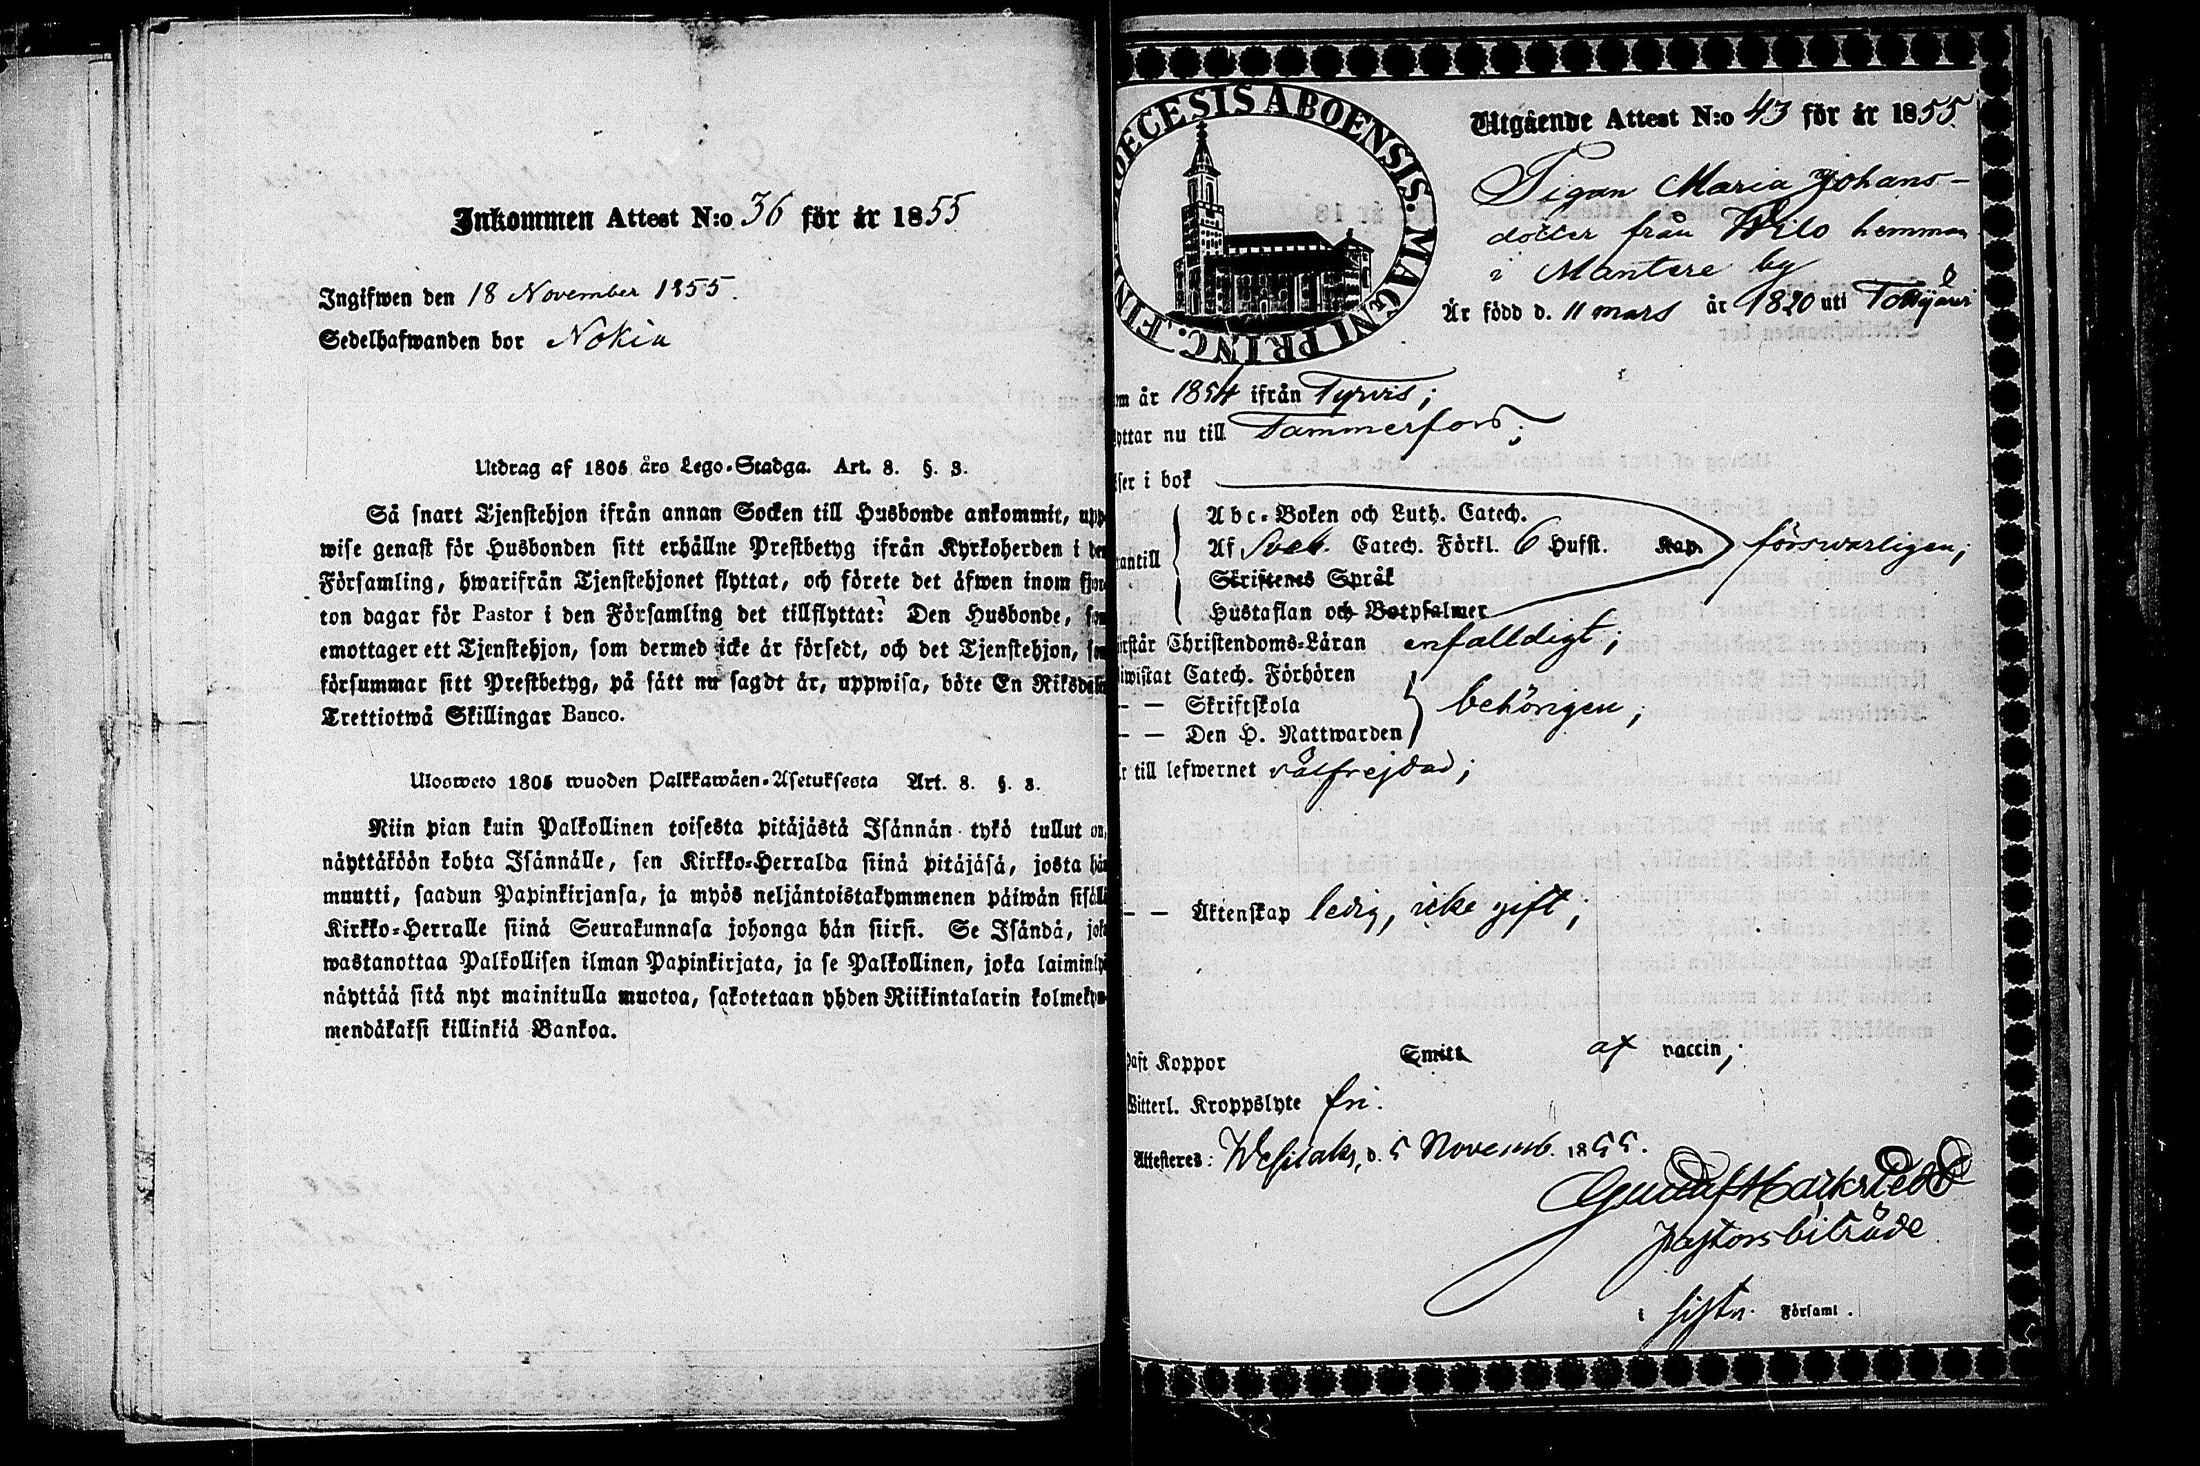 Inkommen Attest N:o 36 för år 1855
Ingifwen den 18 November 1855.
Sedelhafwanden bor Nokia
Utdrag af 1805 års Lego-Stadga. Art. 8. §. 3.
Så snart Tjenstehjon ifrån annan Socken till Husbonde ankommit, upp-
wise genast för Husbonden sitt erhållne Prestbetyg ifrån Kyrkoherden i den
Församling, hwarifrån Tjenstehjonet flyttat, och förete det äfwen inom fjor-
ton dagar för Pastor i den Församling det tillflyttat: Den Husbonde, som
emottager ett Tjenstehjon, som dermed icke är försedt, och det Tjenstehjon, som
försummar sitt Prestbetyg, på sätt nu sagdt är, uppwisa, böte En Riksdaler
Trettiotwå Skillingar Banco.
Ulosweto 1805 wuoden Palkkawäen-Asetuksesta Art. 8. §. 3.
Niin pian kuin Palkollinen toisesta pitäjästä Isännän tykö tullut on,
näyttäköön kohta Isännälle, sen Kirkko-Herralda siinä pitäjäsä, josta hän
muutti, saadun Papinkirjansa, ja myös neljäntoistakymmenen päiwän sisällä
Kirkko-Herralle siinä Seurakunnasa johonga hän siirsi. Se Isändä, joka
wastanottaa Palkollisen ilman Papinkirjata, ja se Palkollinen, joka laiminlyö
näyttää sitä nyt mainitulla muotoa, sakotetaan yhden Riikintalarin kolmekym-
mendäkaksi killinkiä Bankoa.
DIOECESIS ABOENSIS. MAGNI PRINC. FINL
Utgående Attest N:o 43 för år 1855.
Pigan Maria Johans-
dotter från Wilo hemman
i Mantere by
Är född d. 11 mars år 1820 uti
m år 1854 ifrån Tyrvis;
yttar nu till Tammerfors;
ser i bok
Abc-Boken och Luth. Catech.
rantill Af Sveb. Catech. Förkl. 6 Hufst. Kap. förswarligen;
Skriftenes Språk
Hustaflan och Botpsalmer
rstår Christendoms-Läran enfalldigt;
iwistat Catech. Förhören
— — Skriftskola behörigen;
— — Den H. Nattwarden
r till lefwernet välfrejdad;
— — Äktenskap ledig, icke gift;
haft Koppor Smitt af vaccin;
Witterl. Kroppslyte fri.
Attesteres: Wesilaks, d. 5 Novemb. 1855.
Gustaf
Pastorsbiträde
i Församl.